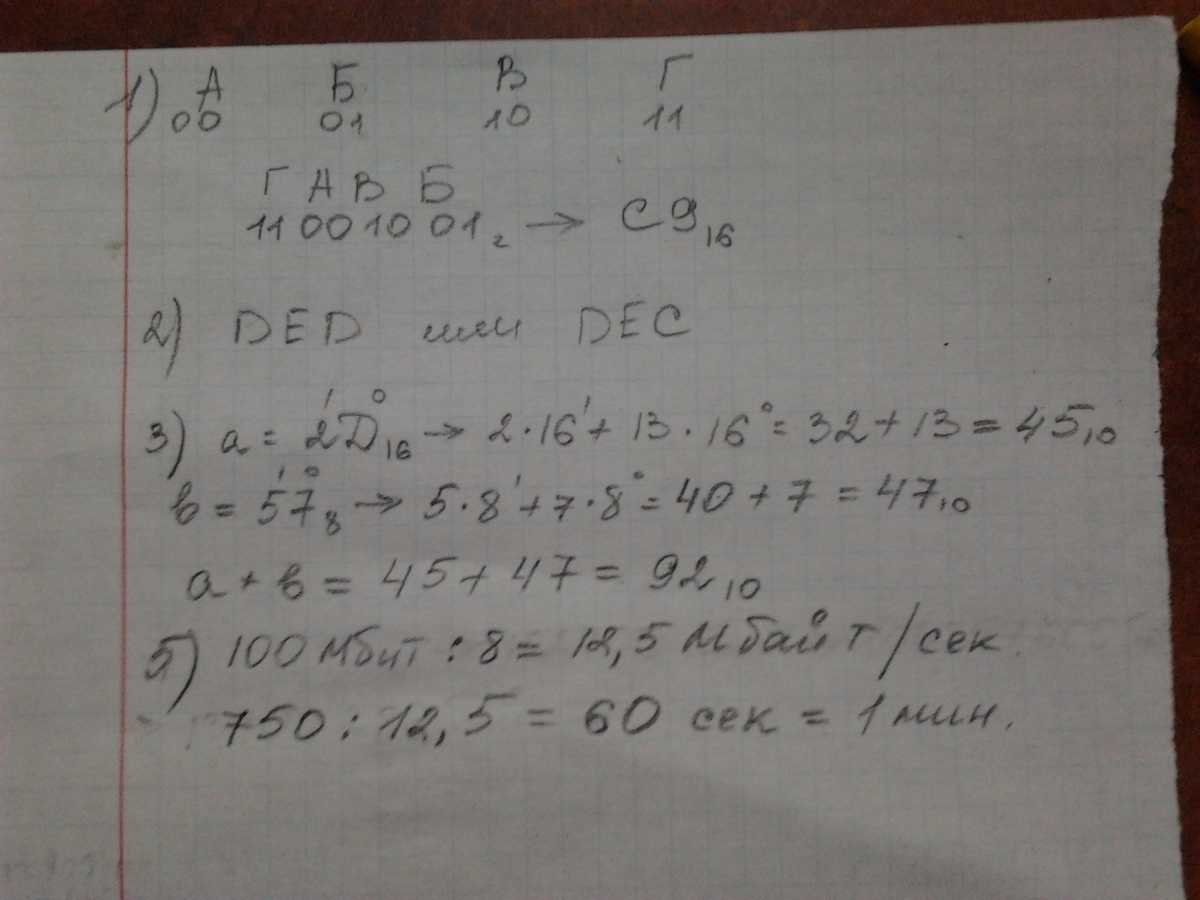 1) А Б В Г
00 01 10 11
Г А В Б
11 00 10 01₂ → C9₁₆
2) DED или DEC
3) a = 2¹D⁰₁₆ → 2·16¹ + 13·16⁰ = 32 + 13 = 45₁₀
в = 5¹7⁰₈ → 5·8¹ + 7·8⁰ = 40 + 7 = 47₁₀
a + в = 45 + 47 = 92₁₀
5) 100 Мбит : 8 = 12,5 Мбайт/сек.
750 : 12,5 = 60 сек = 1 мин.